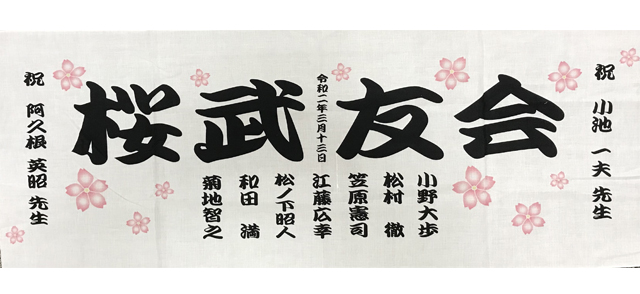 祝 阿久根 英昭 先生
桜武友会
令和二年三月十三日
祝 小池 一夫 先生
小野大歩
松村 徹
笠原憲司
江藤広幸
松ノ下昭人
和田 満
菊地智之